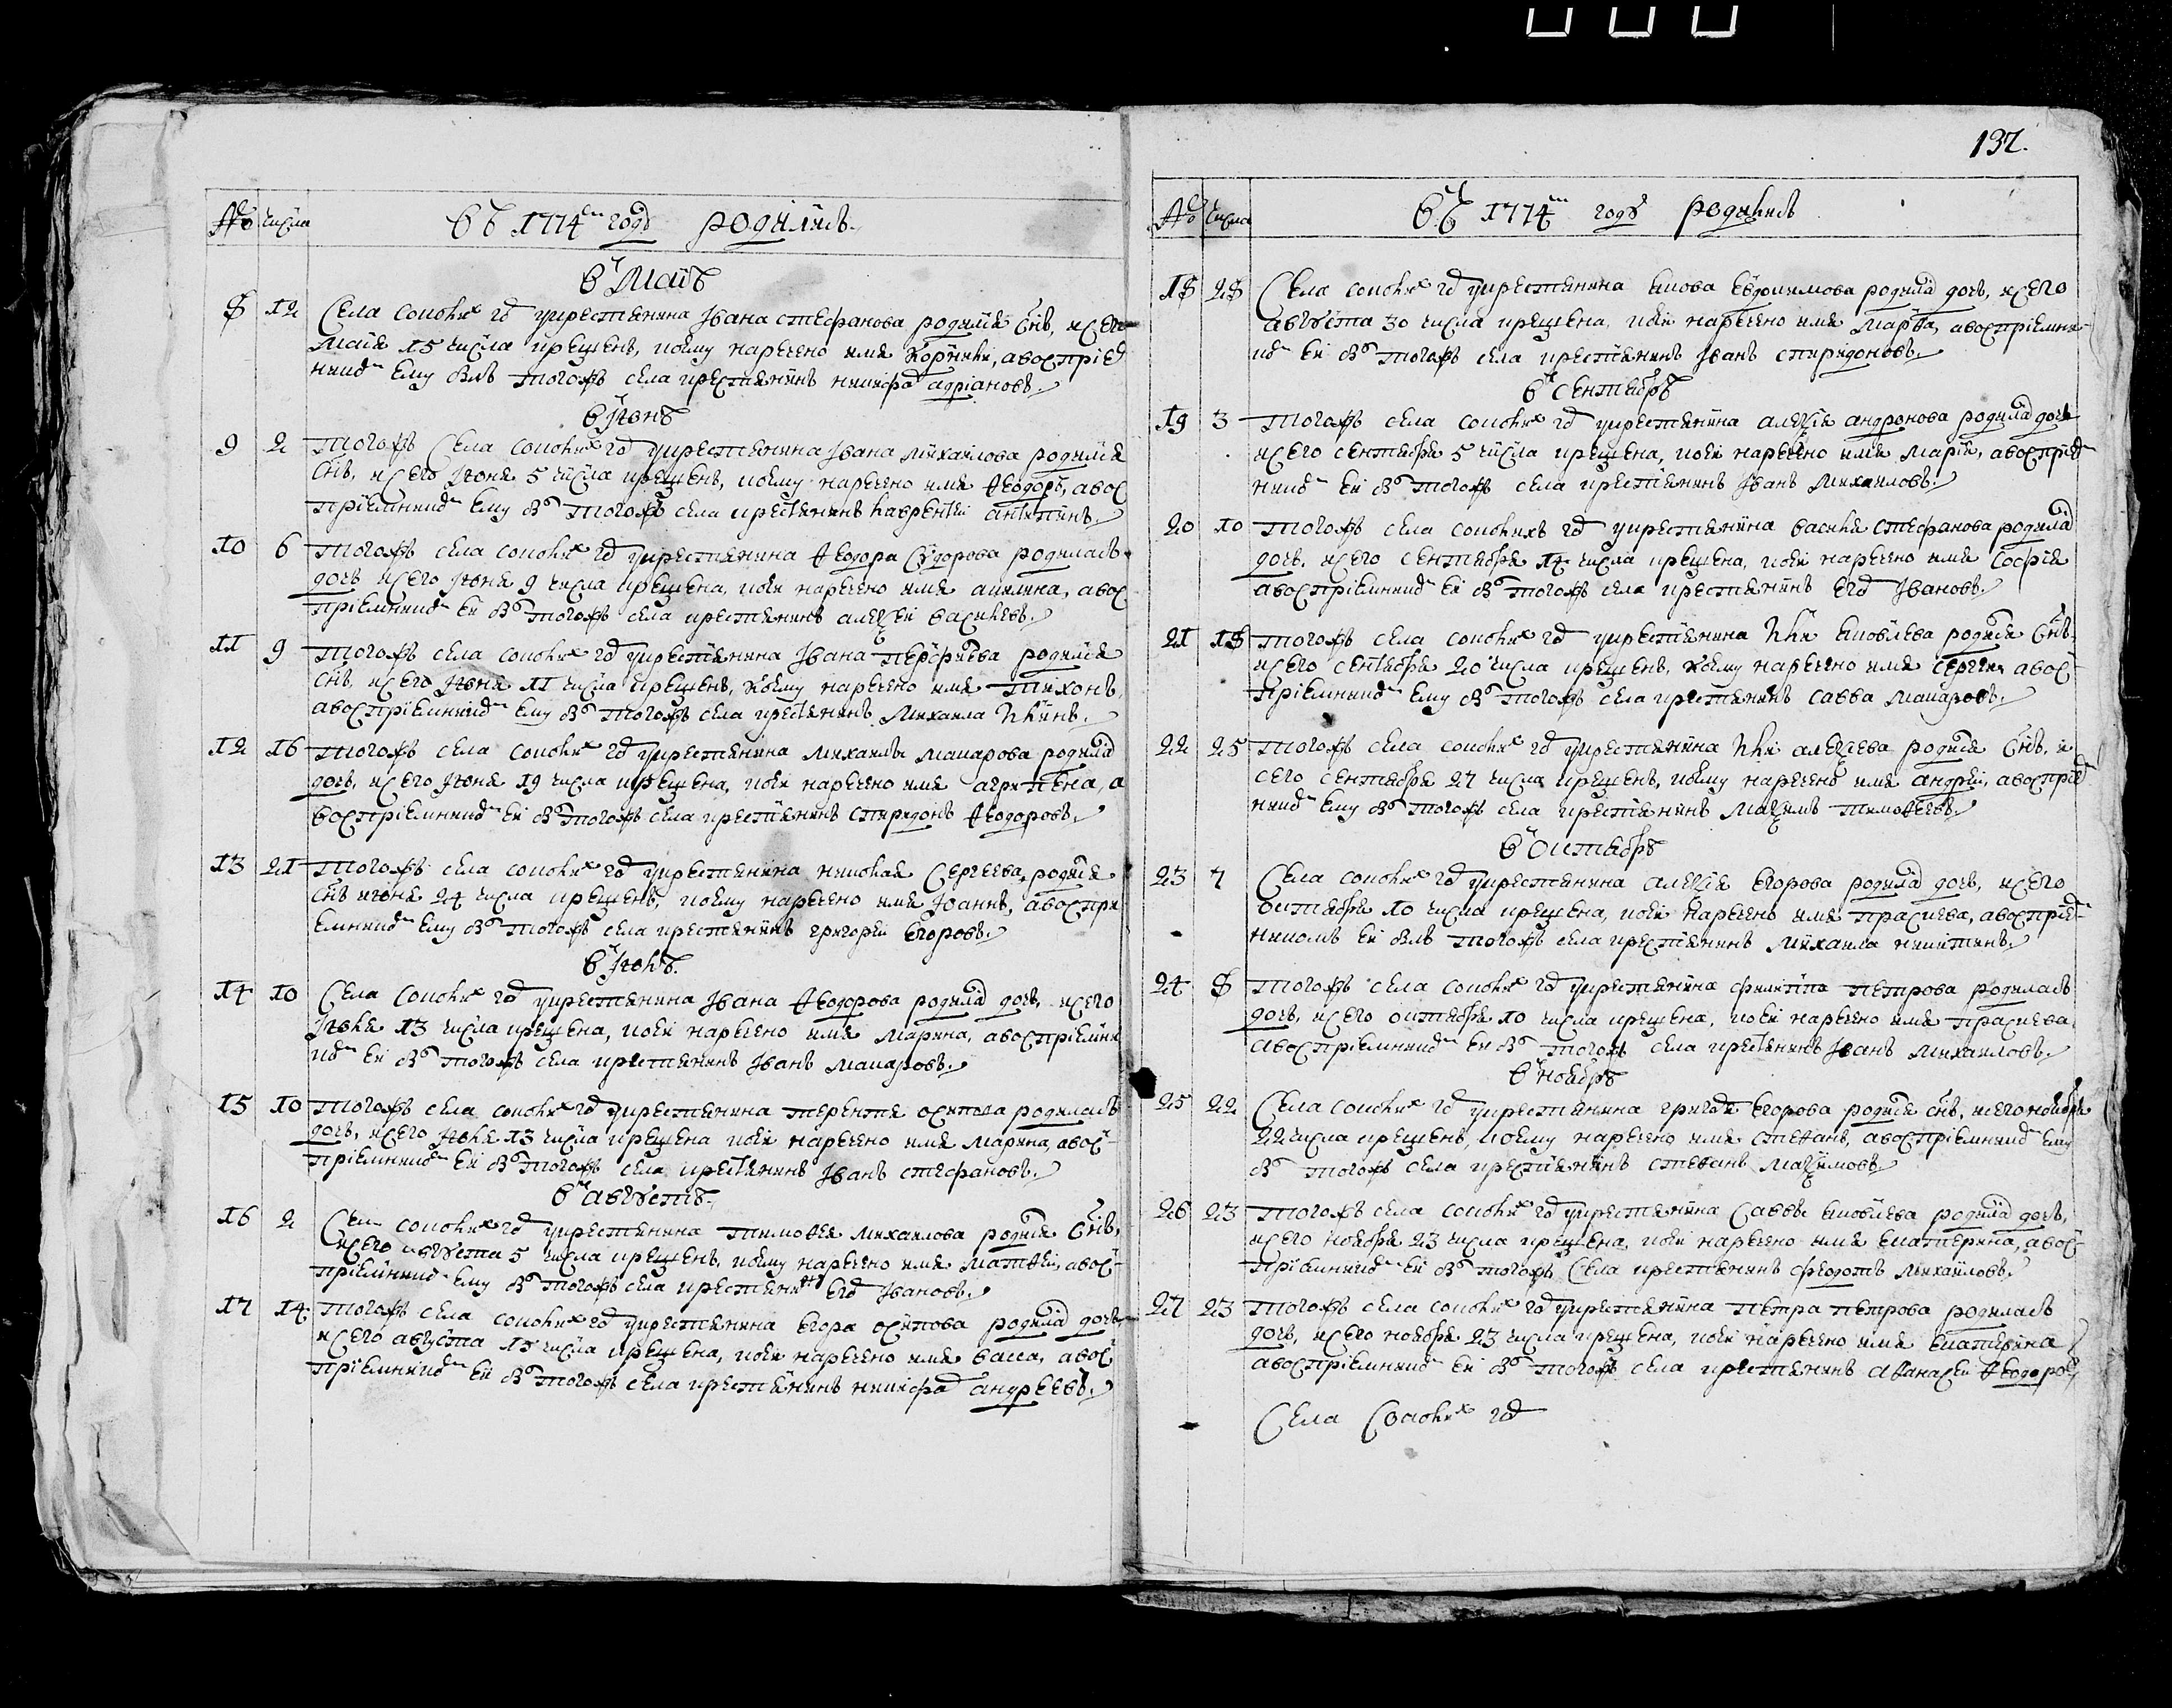 № числа
Въ 1774м годѣ родились.
В Маiѣ
8 12 Села Соколих гд у крестянина Iвана стефанова родился снъ, и сего
Маiя 15 числа крещенъ, коему наречено имя Корнили, а воспрiем
ником ему былъ тогожъ села крестянинъ никифор адрiановъ.
В Iюнѣ
9 2 Тогожъ Села Соколих гд у крестянина Iвана михаилова родился
снъ, и сего Iюня 5 числа крещенъ, коему наречено имя Ѳеодоръ, авос
прiемником ему бы тогожъ села крестянинъ лаврентiи антипинъ.
10 6 Тогожъ села соколих гд у крестянина Ѳеодора Сидорова родилась
дочь и сего Iюня 9 числа крещена, коеи наречено имя акилина, авос
прiемником еи бы тогожъ села крестянинъ алеѯеи василевъ.
11 9 Тогожъ села соколих гд у крестянина Iвана перфилева родился
снъ, и сего Iюня 11 числа крещенъ, коему наречено имя Тихонъ,
авоспрiемником ему бы тогожъ села крестянинъ Михаила Илинъ.
12 16 Тогожъ села соколих гд у крестянина михаилы макарова родилас
дочь, и сего Iюня 19 числа крещена, коеи наречено имя агрипена, а
воспрiемником еи бы тогожъ села крестянинъ спиридонъ Ѳеодоровъ.
13 21 Тогожъ села соколих гд у крестянина николая Сергеева, родился
снъ июня 24 числа крещенъ, коему наречено имя Iоаннъ, авоспри
емником ему бы тогожъ села крестянинъ григореи Егоровъ.
В Iюлѣ.
14 10 Села Соколих гд у крестянина Iвана Ѳеодорова родилас дочь, и сего
Iюля 13 числа крещена, коеи наречено имя Марина, авоспрiемни
ком еи бы тогожъ села крестянинъ Iванъ Макаровъ.
15 10 Тогожъ села соколих гд у крестянина терентя осипова родилась
дочь, и сего Iюля 13 числа крещена коеи наречено имя марина, авос
прiемником еи бы тогожъ села крестянинъ Iванъ стефановъ.
В августѣ.
16 2 Села соколих гд у крестянина тимоѳея михаилова родился снъ,
и сего августа 5 числа крещенъ, коему наречено имя матѳеи, авос
прiемником ему бы тогожъ села крестянинъ Егор Iвановъ.
17 14 Тогожъ села соколих гд у крестянина Егора осипова родилас дочь
и сего августа 15 числа крещена, коеи наречено имя васса, авос
прiемником еи бы тогожъ села крестянинъ никифор андреевъ.
137.
№ числа
Въ 1774м годꙋ родились
18 28 Села соколих гд у крестянина якова Евдокимова родилас дочь, и сего
августа 30 числа крещена, коеи наречено имя марѳа, авоспрiемни
ком еи бы тогожъ села крестянинъ Iванъ спиридоновъ.
В сентябрѣ
19 3 Тогожъ села соколих гд у крестянина алеѯiя андронова родилас дочь
и сего сентября 5 числа крещена, коеи наречено имя Марiя, авоспрiем
ником еи бы тогожъ села крестянинъ Iванъ Михаиловъ.
20 10 Тогожъ села соколихъ гд у крестянина василя стефанова родилас
дочь, и сего сентября 14 числа крещена, коеи наречено имя Софiя
авоспрiемником еи бы тогожъ села крестянинъ Егор Iвановъ.
21 18 Тогожъ села соколих гд у крестянина Или яковлева родися снъ,
и сего сентября 20 числа крещенъ, коему наречено имя сергеи авос
прiемником ему бы тогожъ села крестянинъ савва макаровъ.
22 25 Тогожъ села соколих гд у крестянина Или алеѯева родися снъ, и
сего сентября 27 числа крещенъ, коему наречено имя андреи, авоспрiем
ником ему бы тогожъ села крестянинъ маѯимъ тимоѳеевъ.
В октябрѣ
23 7 Села соколих гд у крестянина алеѯiя Егорова родилас дочь, и сего
октября 10 числа крещена, коеи наречено имя праскева, авоспрiем
никомъ еи былъ тогожъ села крестянинъ михаила никитинъ.
24 8 Тогожъ села соколих гд у крестянина филипа петрова родилась
дочь, и сего октября 10 числа крещена, коеи наречено имя праскева,
авоспрiемником еи бы тогожъ села крестянинъ Iванъ михаиловъ.
В ноябрѣ
25 22 Села соколих гд у крестянина григоря Егорова родися снъ, и сего ноября
22 числа крещенъ, коему наречено имя стеѳанъ, авоспрiемником ему
бы тогожъ села крестянинъ стеѳанъ маѯимовъ
26 23 Тогожъ села соколих гд у крестянина Саввы яковлева родилас дочь,
и сего ноября 23 числа крещена, коеи наречено имя екатерина, авос
прiемником еи бы тогожъ Села крестянинъ феодотъ михаиловъ.
27 23 Тогожъ села соколих гд у крестянина петра петрова родилась
дочь, и сего ноября 23 числа крещена, коеи наречено имя екатерина
авоспрiемником еи бы тогожъ села крестянинъ аѳанасеи Ѳеодоров
Села Соколих гд